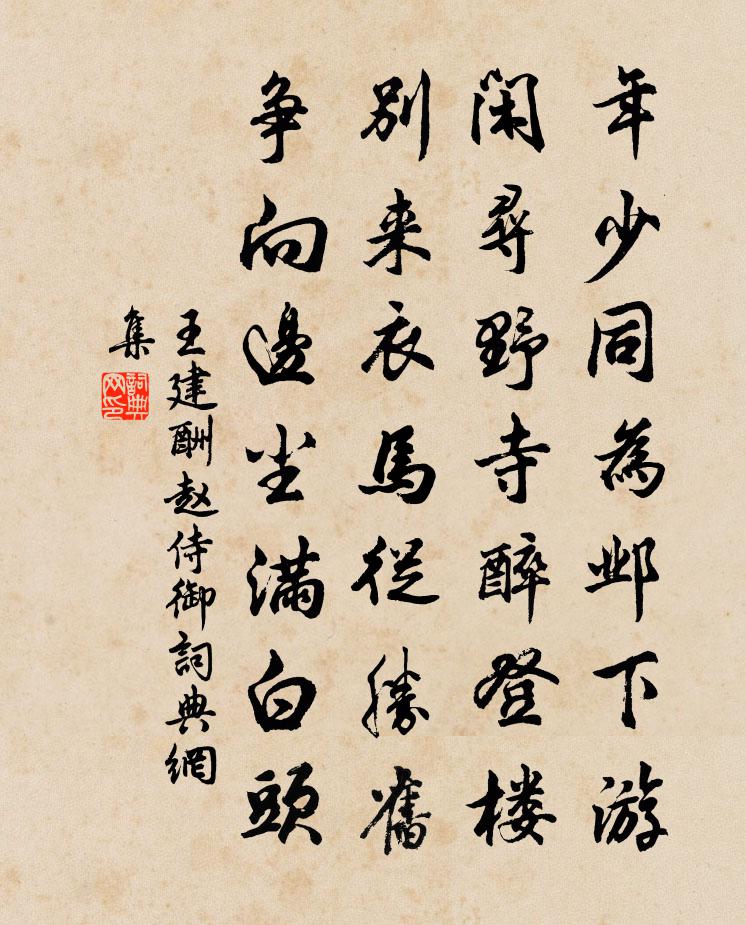 年少同為邺下游
闲尋野寺醉登楼
别来衣馬從勝舊
争向邊尘满白頭
王建酬赵侍御詞典網
集
詞典网印